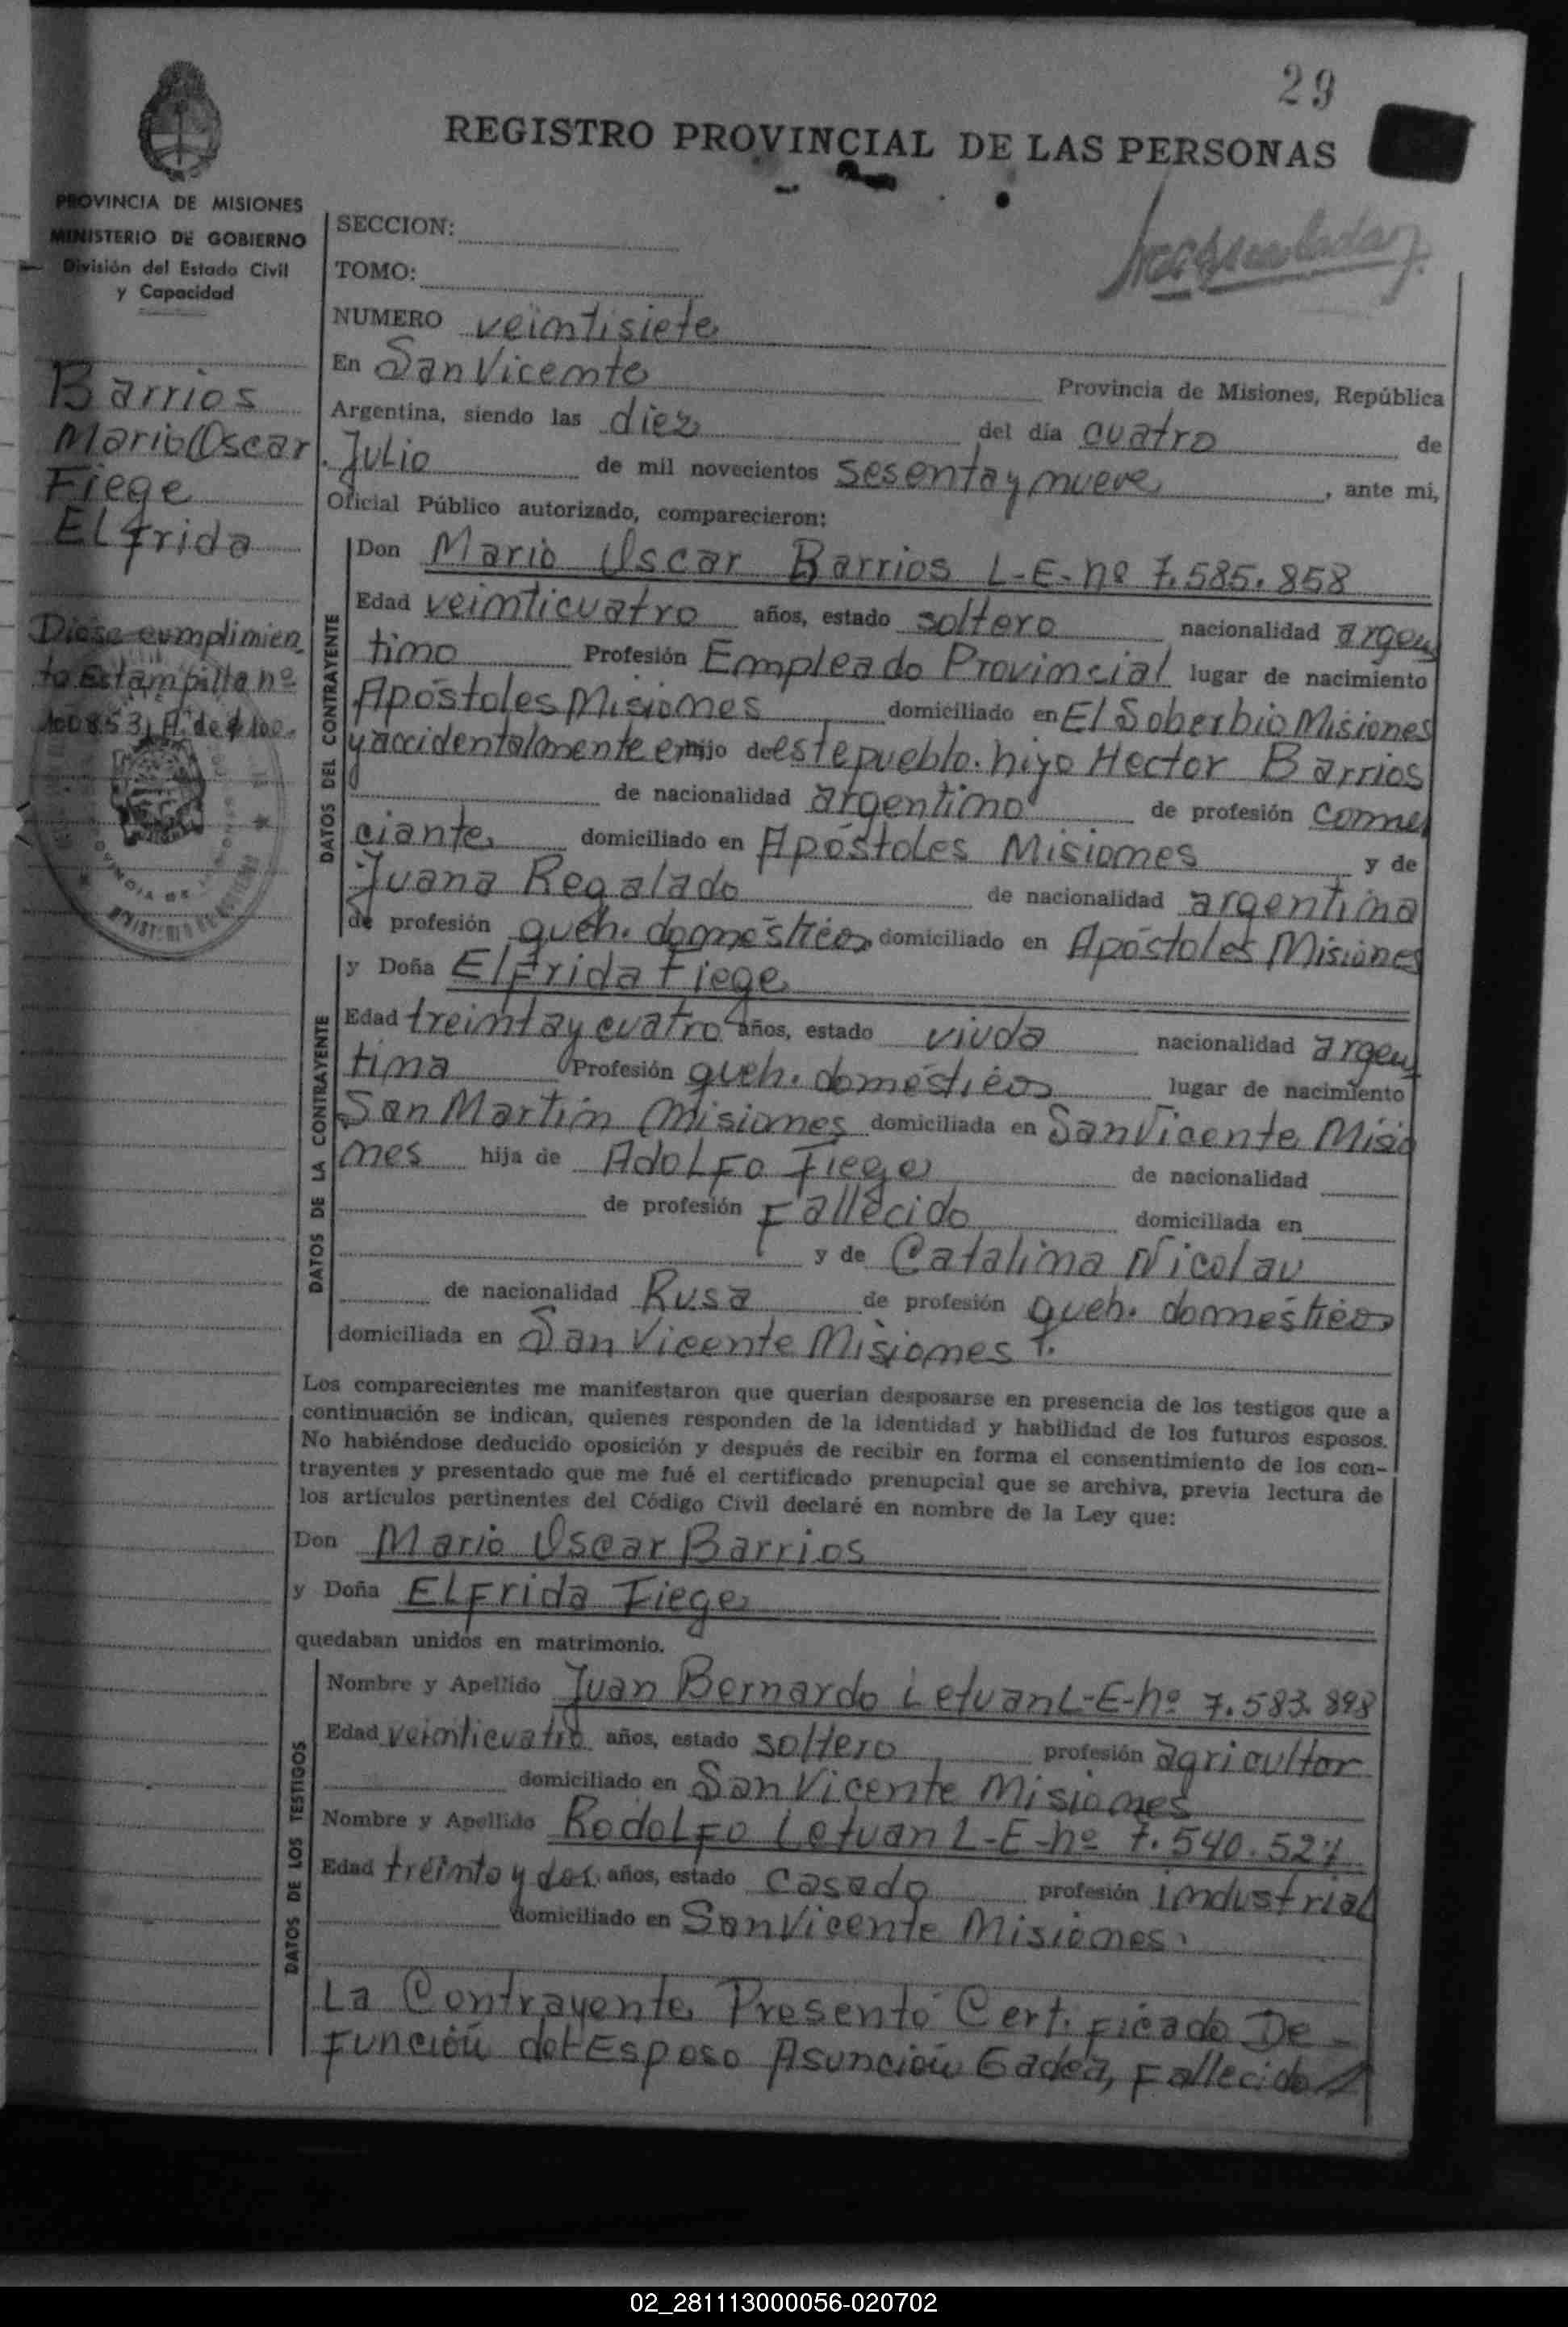 29
REGISTRO PROVINCIAL DE LAS PERSONAS
PROVINCIA DE MISIONES
MINISTERIO DE GOBIERNO
División del Estado Civil
y Capacidad
Barrios
Mario Oscar
Fiege
Elfrida
Diose cumplimien
to Estampilla nº
SECCION:
TOMO:
NUMERO veintisiete
En San Vicente Provincia de Misiones, República
Argentina, siendo las diez del día cuatro de
Julio de mil novecientos sesenta y nueve, ante mi,
Oficial Público autorizado, comparecieron:
DATOS DEL CONTRAYENTE
Don Mario Oscar Barrios L-E-nº 7.585.858
Edad veinticuatro años, estado soltero nacionalidad argen
tino Profesión Empleado Provincial lugar de nacimiento
Apóstoles Misiones domiciliado en El Soberbio Misiones
y accidentalmente en hijo de este pueblo. hijo Hector Barrios
de nacionalidad argentino de profesión comer
ciante domiciliado en Apóstoles Misiones y de
Juana Regalado de nacionalidad argentina
de profesión queh. domésticos domiciliado en Apóstoles Misiones
DATOS DE LA CONTRAYENTE
y Doña Elfrida Fiege
Edad treinta y cuatro años, estado viuda nacionalidad argen
tina Profesión queh. domésticos lugar de nacimiento
San Martín Misiones domiciliada en San Vicente Misio
nes hija de Adolfo Fiege de nacionalidad
de profesión Fallecido domiciliada en
y de Catalina Nicolau
de nacionalidad Rusa de profesión queh. domésticos
domiciliada en San Vicente Misiones
Los comparecientes me manifestaron que querían desposarse en presencia de los testigos que a
continuación se indican, quienes responden de la identidad y habilidad de los futuros esposos.
No habiéndose deducido oposición y después de recibir en forma el consentimiento de los con-
trayentes y presentado que me fué el certificado prenupcial que se archiva, previa lectura de
los artículos pertinentes del Código Civil declaré en nombre de la Ley que:
Don Mario Oscar Barrios
y Doña Elfrida Fiege
quedaban unidos en matrimonio.
DATOS DE LOS TESTIGOS
Nombre y Apellido Juan Bernardo Letuan L-E-nº 7.583.898
Edad veinticuatro años, estado soltero profesión agricultor
domiciliado en San Vicente Misiones
Nombre y Apellido Rodolfo Letuan L-E-nº 7.540.527
Edad treinta y dos años, estado casado profesión industrial
domiciliado en San Vicente Misiones
La Contrayente Presentó Certificado De-
Función del Esposo Asunción Gadea, Fallecido
02_281113000056-020702